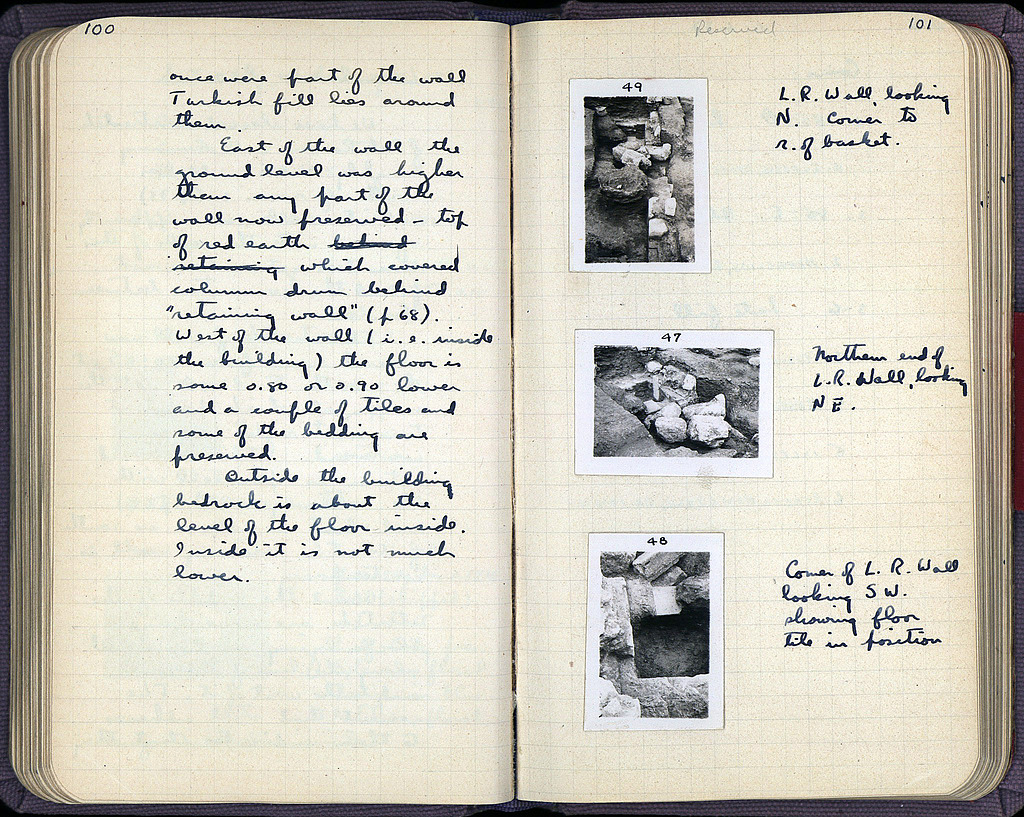 100
once were part of the wall
Turkish fill lies around
them.
East of the wall the
ground level was higher
than any part of the
wall now preserved – top
of red earth behind
retaining which covered
column drum behind
"retaining wall" (p 68).
West of the wall (i.e. inside
the building) the floor is
some 0.80 or 0.90 lower
and a couple of tiles and
some of the bedding are
preserved.
Outside the building
bedrock is about the
level of the floor inside.
Inside it is not much
lower.
Reserved
101
49
L.R. Wall, looking
N. Corner to
r. of basket.
47
Northern end of
L.R. Wall, looking
NE.
48
Corner of L. R. Wall
looking SW.
showing floor
tile in position